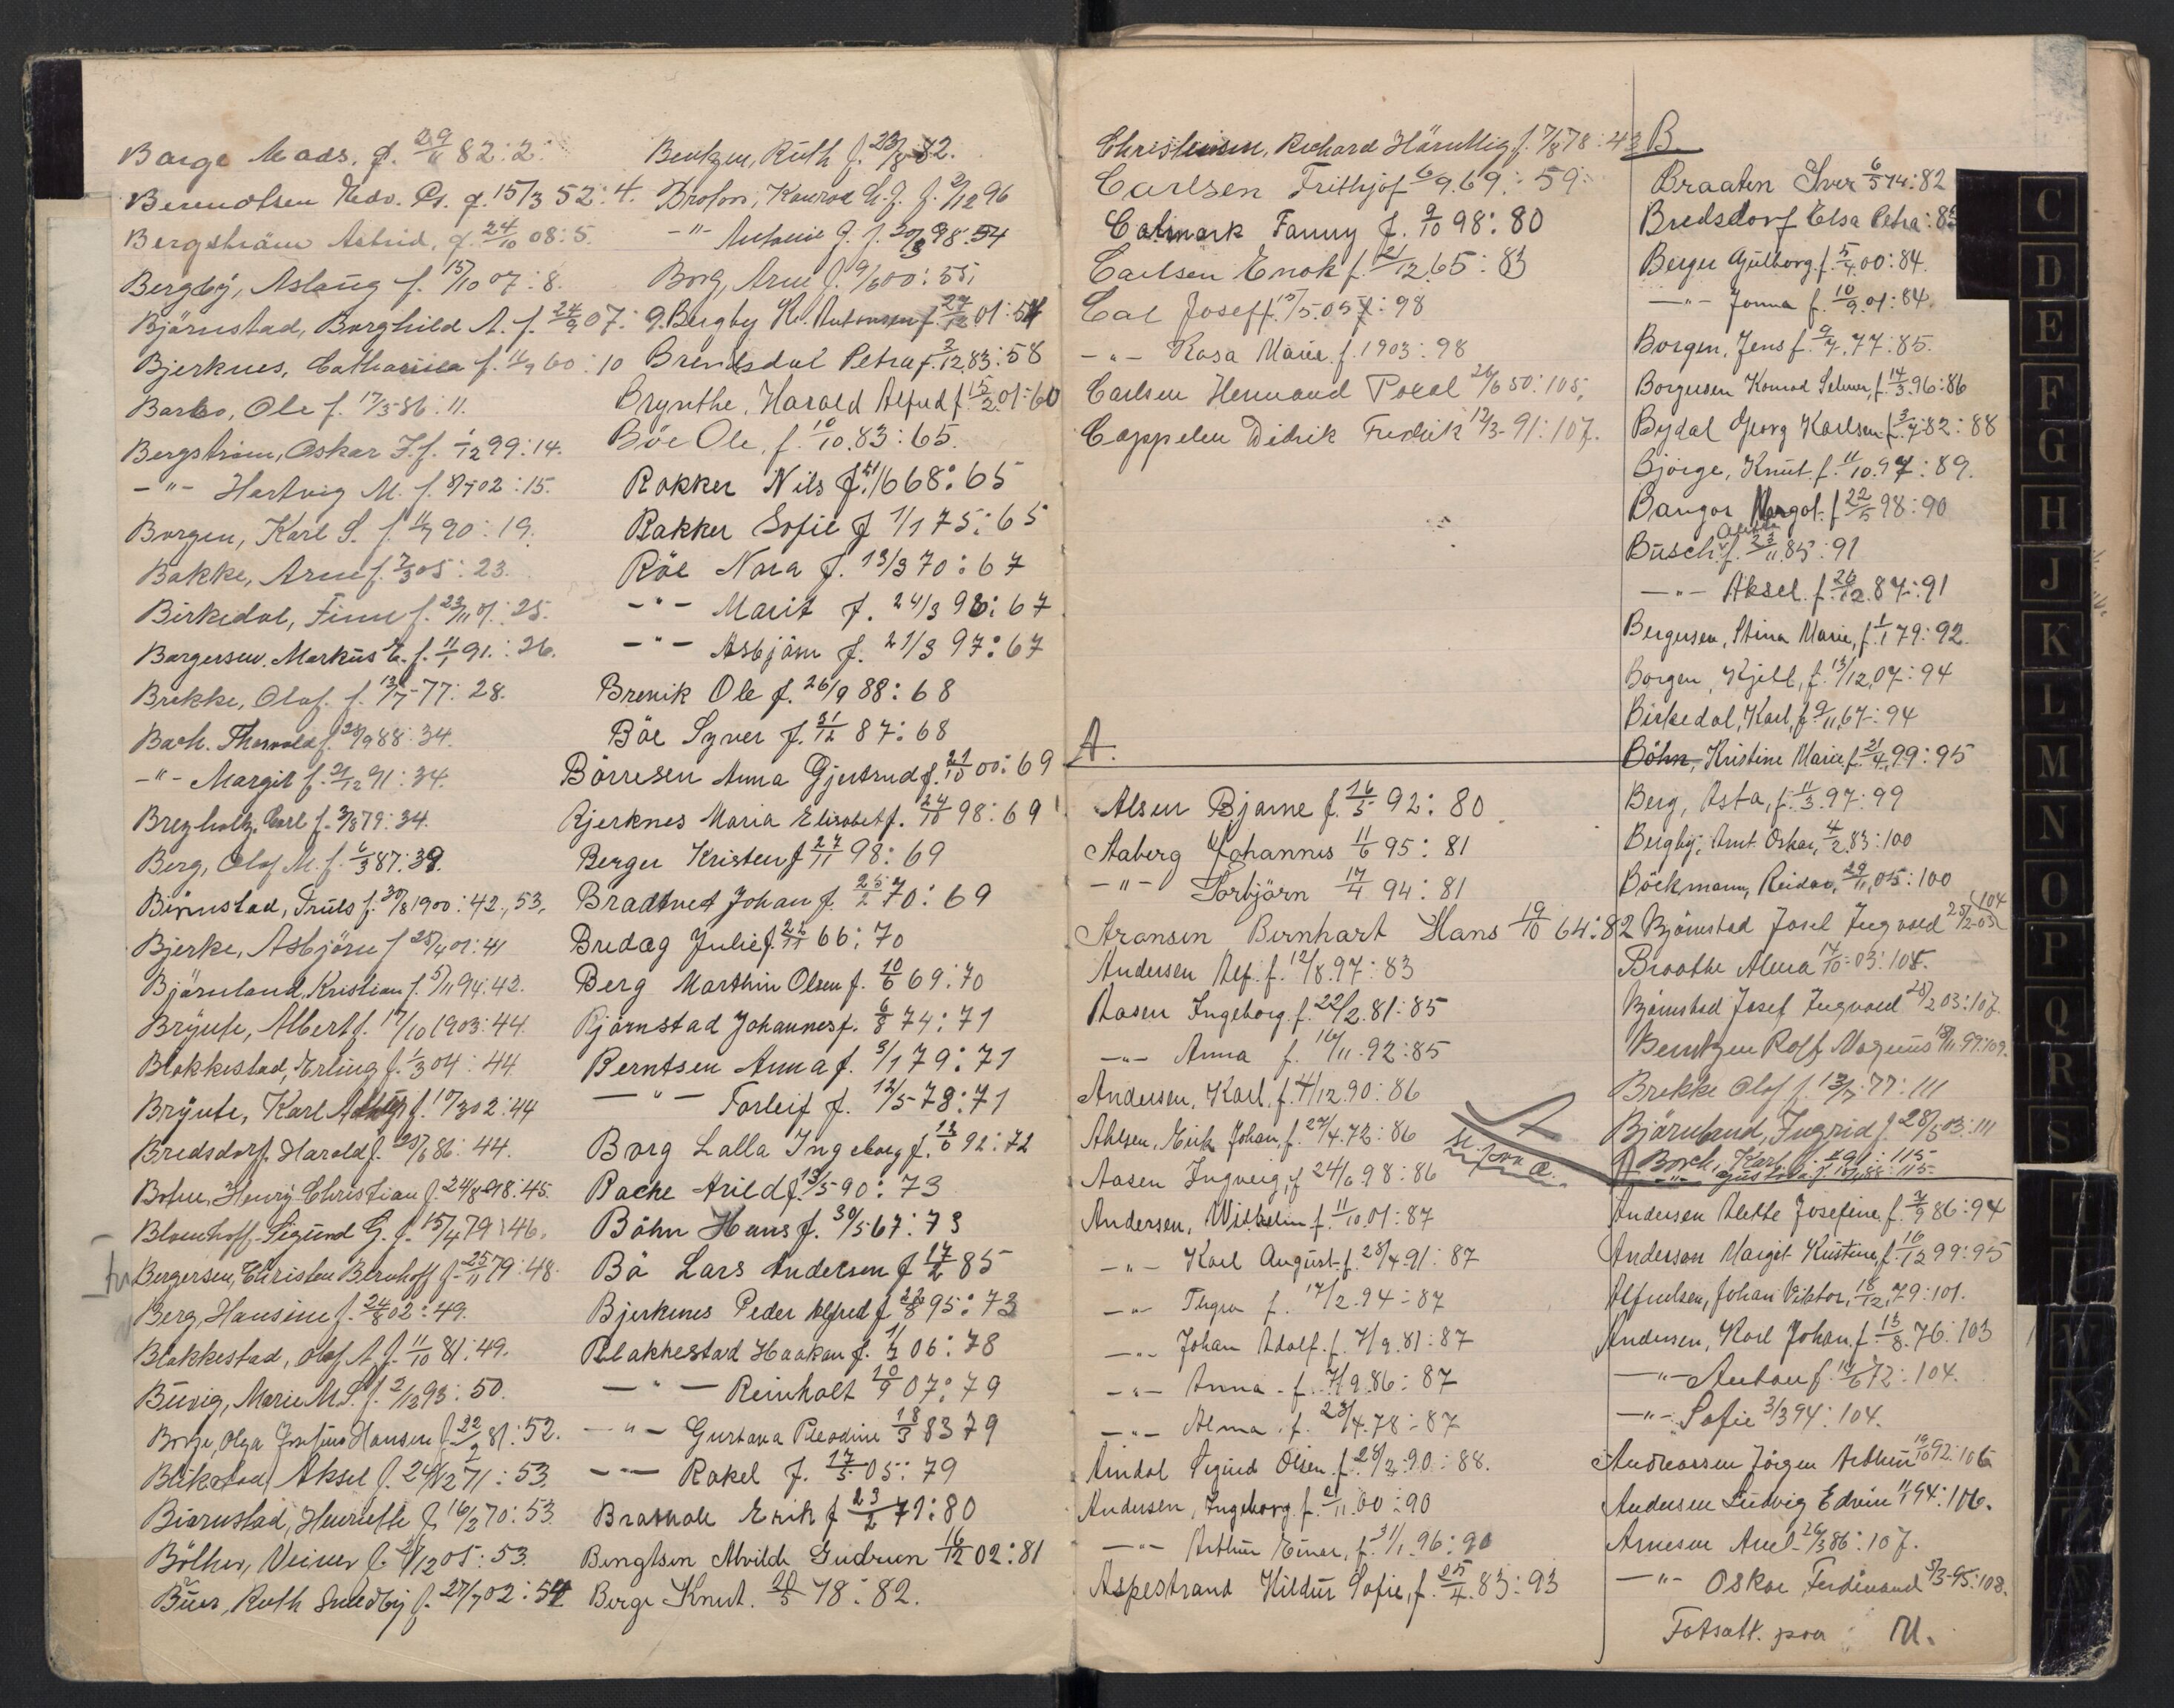 Barge Mads. f. 29/11 82: 2.
Berendtsen Edv. Chr. f. 15/3 52: 4.
Bergström Astrid, f. 24/10 08: 5.
Bergby, Aslaug f. 15/10 07: 8.
Björnstad, Borghild A. f. 24/9 07: 9.
Bjerknes, Catharina f. 11/9 60: 10
Barbo, Ole f. 17/3 86: 11.
Bergström, Oskar J. f. 1/12 99: 14.
-"- Hartvig M. f. 8/7 02: 15.
Borgen, Karl S. f. 11/7 90: 19.
Bakke, Arne f. 7/3 05: 23.
Birkedal, Finn f. 23/11 01: 25.
Borgersen, Markus E. f. 11/1 91: 26.
Brekke, Olaf. f. 13/7-77: 28.
Bach. Thorvald f. 28/9 88: 34.
-"- Margit f. 21/12 91: 34.
Bregholtz, Carl f. 3/8 79: 34.
Berg, Olaf M. f. 6/3 87: 39.
Björnstad, Truls f. 30/8 1900: 42, 53,
Bjerke, Asbjörn f 28/4 01: 41
Björnland, Kristian f. 5/11 94: 42.
Brynte, Albert f. 17/10 1903: 44.
Blakkestad, Erling f. 1/3 04: 44
Brynte, Karl f. 17/3 02: 44
Bredsdorf. Harald f. 25/6 86: 44.
Bohne, Henry Christian f. 24/8-98: 45.
Blomhoff, Sigurd G. f. 15/4 79: 46.
Bergersen, Christen Bernhoff f. 25/11 79: 48.
Berg, Hansine f. 24/8 02: 49.
Blakkestad, Olaf A. f. 11/10 81: 49.
Buvig, Marie M.S. f. 2/12 93: 50.
Borge, Olga Hansen f. 22/2 81: 52.
Blikstad, Aksel f. 24/12 71: 53.
Björnstad, Henriette f. 16/2 70: 53.
Bölher, Veiner f. 4/12 05: 53.
Buer, Ruth Smedby f. 27/7 02: 54
Bentzen, Ruth f. 23/8-82.
f. 2/12 96
-"- Antonie G. f. 20/3 98: 54
Borg, Arne f. 9/6 00: 55,
Bergby Kr. Antonsen f. 27/12 01: 54
Brendsdal Petra f. 2/12 83: 58
Brynthe, Harald Alfred f. 15/2 01: 60
Böe Ole, f. 10/10. 83: 65.
Bakker Nils f. 21/6 68: 65
Bakker Sofie f 1/1 75: 65
Böe Nora f. 13/3 70: 67
-"- Marit f. 24/3 98: 67
-"- Asbjörn f. 21/3 97: 67
Brenik Ole f. 26/9 88: 68
Böe Syver f. 31/12 87: 68
Börresen Anna Gjertrud f. 21/10 00: 69
Bjerknes Maria Elisabet f. 24/10 98: 69
Berger Kristen f 27/11 98: 69
Bradtvet Johan f. 25/2 70: 69
Bredag Julie f. 25/11 66: 70
Berg Marthin Olsen f. 10/6 69: 70
Bjørnstad Johannes f. 6/8 74: 71
Berntsen Anna f. 3/1 79: 71
-"- Torleif f. 12/5-78: 71
Borg Lalla Ingeborg f. 13/6 92: 72
Bache Arild f. 13/5 90: 73
Böhn Hans f. 30/5 67: 73
Bö Lars Andersen f 17/2 85
Bjerknes Peder Alfred f 22/8 95: 73
Blakkestad Haakon f. 06: 78
-"- Reinholt 20/9 07: 79
-"- Gustava Pleodine 18/3 83 79
-"- Rakel f. 17/5 05: 79
Erik f 23/2 71: 80
Bengtsen Alvilde Gudrun 16/12 02: 81
Berge Knut. 20/5 78: 82.
Christensen, Richard f. 7/8 78: 43
Carlsen Frithjof 6/9. 69: 59
Calmark Fanny f. 9/10 98: 80
Carlsen Enok f. 21/12. 65: 83
Cal Josef f. 15/5. 05: 98
-"- Rosa Marie. f. 1903: 98
Carlsen Hermand Poval 26/6 50: 105,
Cappelen Didrik Fredrik 12/3-91: 107.
A.
Alsen Bjarne f. 16/5 92: 80
Aaberg Johannes 11/6 95: 81
-"- Torbjörn 17/4 94: 81
Aronsen Bernhart Hans 19/10 64: 82
Andersen Alf. f. 12/8. 97: 83
Aasen Ingeborg. f. 22/2. 81: 85
-"- Anna f. 16/11. 92: 85
Andersen, Karl, f. 4/12. 90: 86
Ahlsen, Erik Johan, f. 27/4. 72: 86
Aasen Ingveig, f 24/6 98: 86
Andersen, Wilhelm f. 11/10. 01: 87
-"- Karl August. f. 28/4-91: 87
-"- Thyra f. 17/2. 94: 87
-"- Johan Adolf. f. 7/9. 81: 87
-"- Anna. f. 7/9. 86: 87
-"- Alma. f. 23/4. 78: 87
Amdal Sigurd Olsen. f. 28/2. 90: 88.
Andersen, Ingeborg. f. 2/11. 00: 90
-"- Arthur Einar, f. 31/1. 96: 90
Aspestrand Hildur Sofie, f. 25/4. 83: 93
B.
Braaten Iver 6/5 74: 82
Bredsdorf Elsa Petra: 82
Berger Gulborg. f. 5/4. 00: 84.
-"- Jonna f. 10/9. 01: 84.
Borgen, Jens f. 9/7. 77: 85.
Borgersen Konrad f. 14/3. 96: 86
Bydal Georg Karlsen f. 3/7 82: 88
Bjørge, Knut. f. 11/10. 97: 89.
Bangor Margot. f 22/5 98: 90
Busch f. 23/11. 85: 91
-"- Aksel. f. 26/12. 87: 91
Bergersen, Stina Marie, f. 1/1 79: 92.
Borgen, Kjell, f. 13/12. 07: 94
Birkedal, Karl, f. 9/11. 67: 94
Böhn, Kristine Marie f. 21/4. 99: 95
Berg, Asta, f. 11/3. 97: 99
Bergby, Arnt Oskar, 4/2. 83: 100
Böckmann, Reidar, 29/11. 05: 100
Bjørnstad Josef Ingvald 25/2-03 (104
Braathe Alma 14/10-03: 105.
Bjørnstad Josef Ingvald 25/2 03: 107.
Berntzen Rolf Magnus 18/11. 99: 109.
Brekke Olaf f. 13/7. 77: 111
Björnland, Ingrid f. 28/5 03: 111
Borch, Karl f. 91: 115
-"- f. 88: 115
Se foran
Andersen Alette Josefine, f. 7/9 86: 94
Anderson Margit Kristine, f. 16/12 99: 95
Alfredsen, Johan Viktor, 18/12. 79: 101.
Andersen, Karl Johan, f. 13/8. 76: 103
-"- Anton f. 14/6 72: 104.
-"- Sofie 3/3 94: 104.
Andreassen Jörgen Arthur 19/10 92: 106
Andersen Ludvig Edvin 11/1 94: 106.
Arnesen Axel 26/3 86: 107.
-"- Oskar Ferdinand 5/3-95: 108.
Fotsatt. paa U.
C
D
E
F
G
H
J
K
L
M
N
O
P
Q
R
S